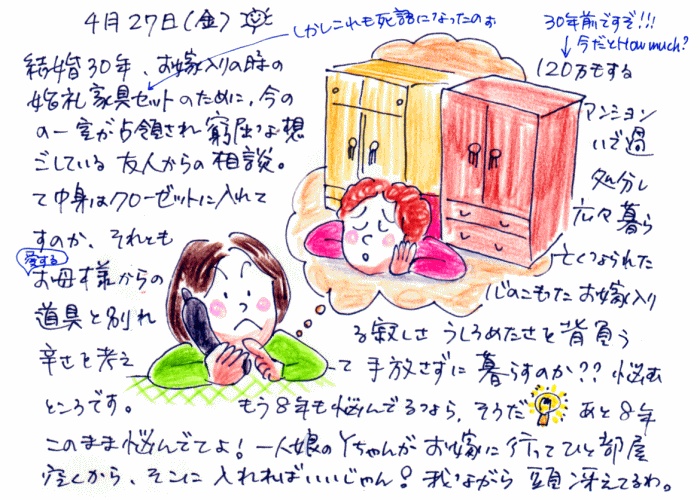 4月27日(金)
しかしこれも死語になったのカ
30年前ですぞ!!!
今だとHow much?
結婚30年、お嫁入りの時の
120万もする
婚礼家具セットのために、今の
マンション
の一室が占領され窮屈な想
いで過
ごしている友人からの相談。
処分し
て中身はクローゼットに入れて
広々暮ら
すのか、それとも
亡くなられた
愛する
お母様からの
心のこもったお嫁入り
道具と別れ
る寂しさ うしろめたさを背負う
辛さを考え
て手放さずに暮らすのか?? 悩む
ところです。
もう8年も悩んでるなら、そうだ
あと8年
このまま悩んでてよ!一人娘のYちゃんがお嫁に行ってひと部屋
空くから、そこに入れればいいじゃん!我ながら頭冴えてるわ。